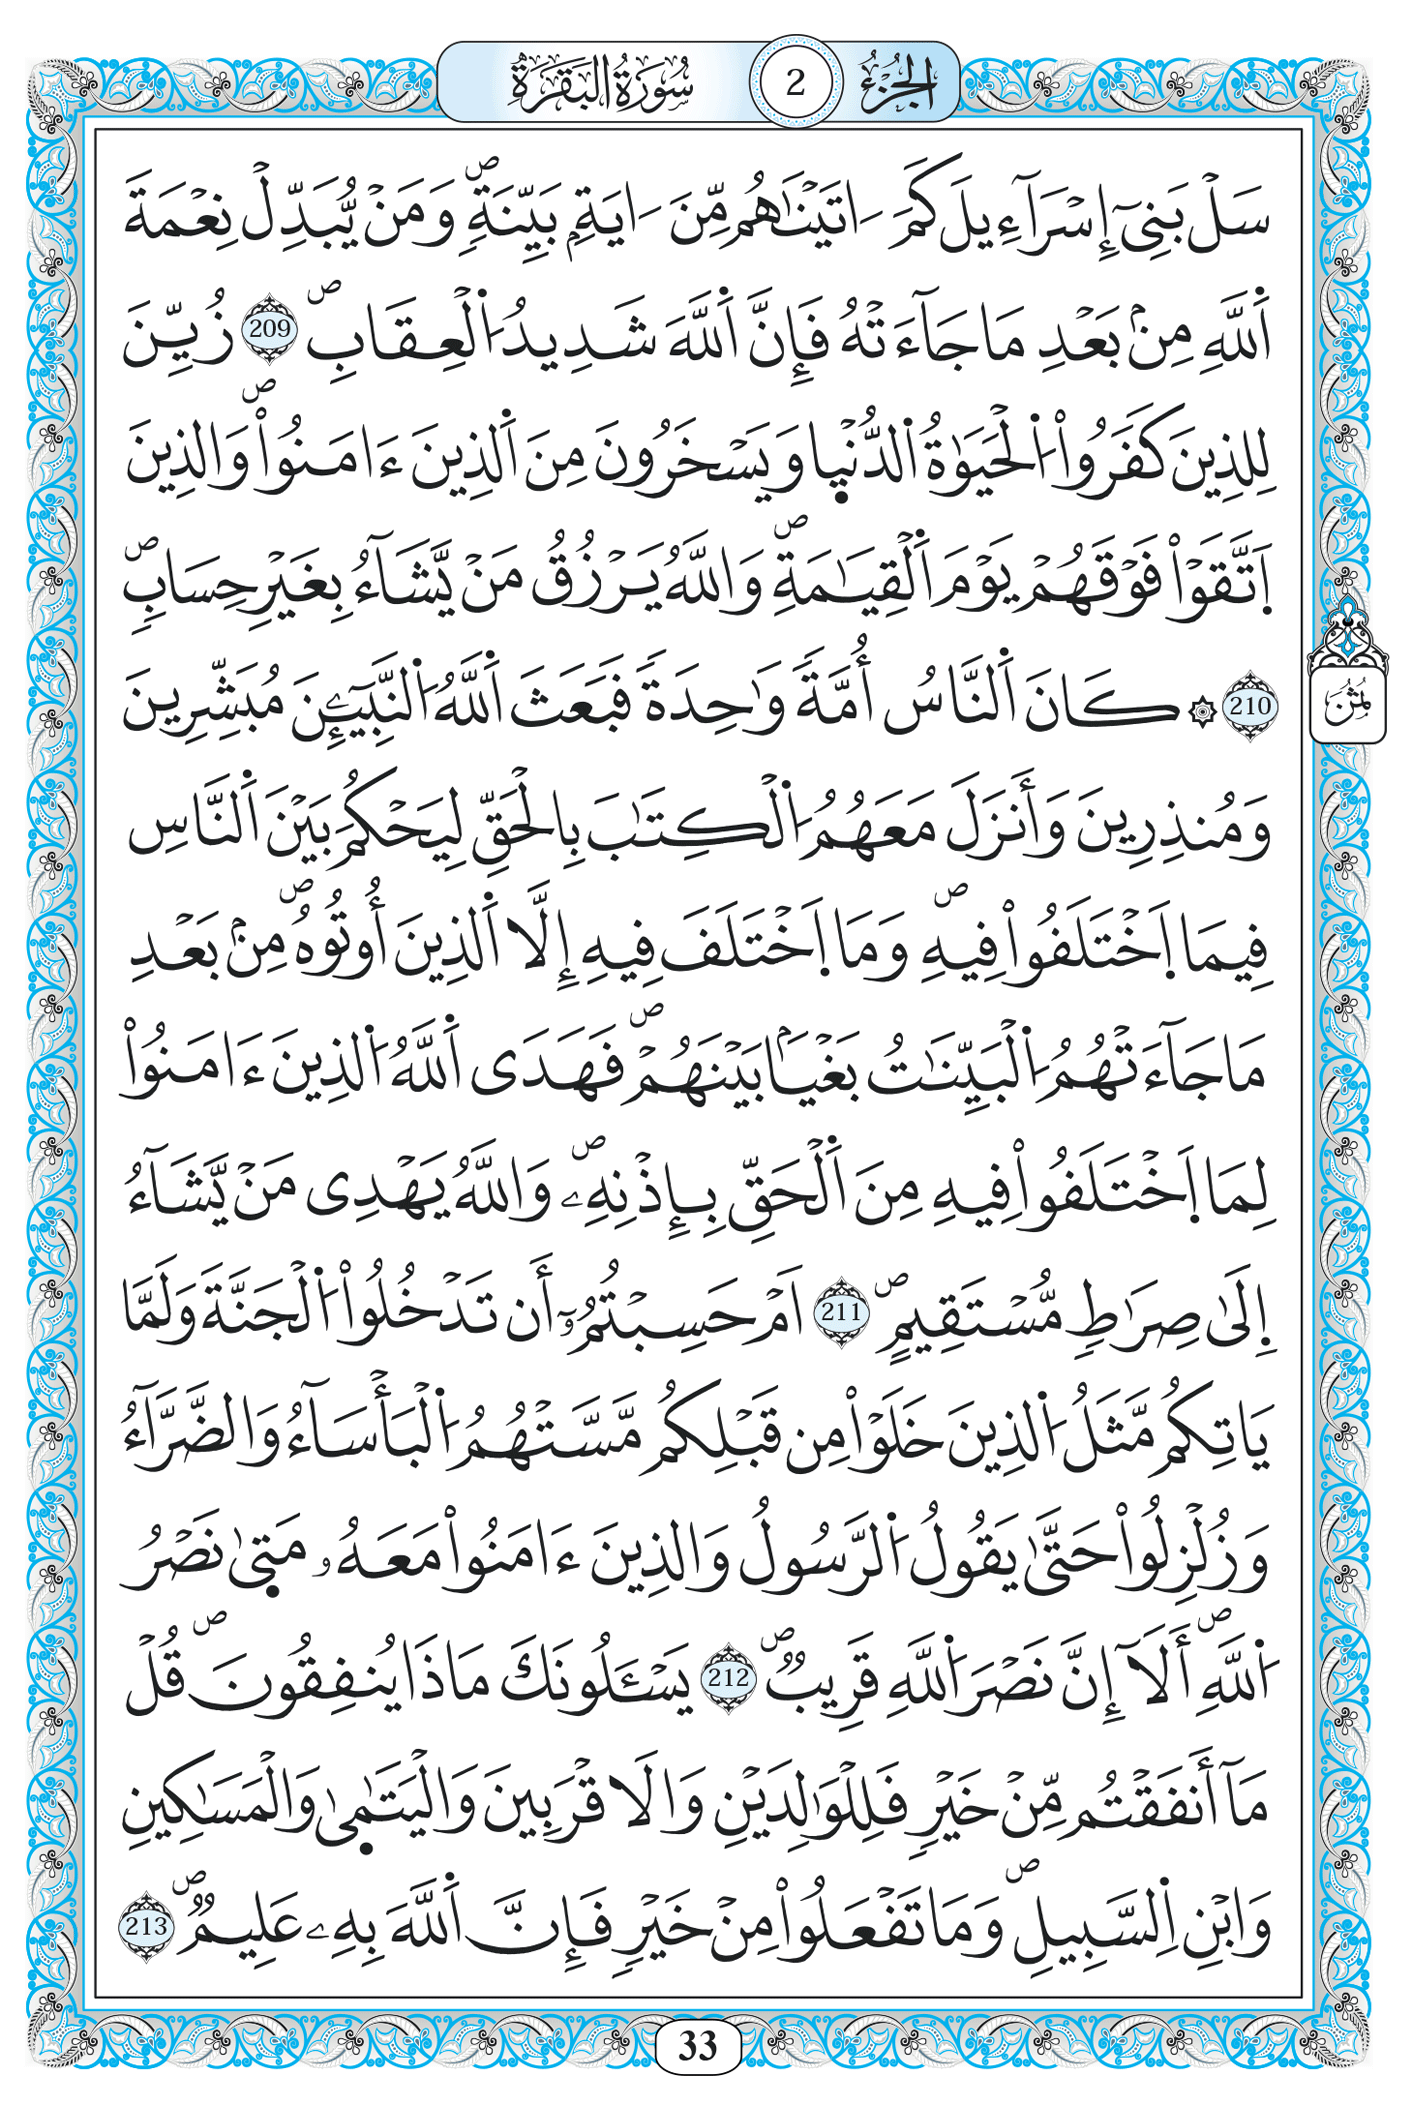 الجزء 2 سورة البقرة
سَلْ بَنِىٓ إِسْرَآءِيلَ كَمَ اٰتَيْنَٰهُم مِّنَ اٰيَةِۢ بَيِّنَةٖۖ وَمَنْ يُّبَدِّلْ نِعْمَةَ
اَ۬للَّهِ مِنۢ بَعْدِ مَا جَآءَتْهُ فَإِنَّ اَ۬للَّهَ شَدِيدُ اُ۬لْعِقَابِۖ 209 زُيِّنَ
لِلذِينَ كَفَرُواْ اُ۬لْحَيَوٰةُ اُ۬لدُّنْي۪ا وَيَسْخَرُونَ مِنَ اَ۬لذِينَ ءَامَنُواْۖ وَالذِينَ
اَ۪تَّقَوْاْ فَوْقَهُمْ يَوْمَ اَ۬لْقِيَٰمَةِۖ وَاللَّهُ يَرْزُقُ مَنْ يَّشَآءُ بِغَيْرِ حِسَابٖۖ
210 ۞ كَانَ اَ۬لنَّاسُ أُمَّةٗ وَٰحِدَةٗ فَبَعَثَ اَ۬للَّهُ اُ۬لنَّبِيٓـِٕينَ مُبَشِّرِينَ
وَمُنذِرِينَ وَأَنزَلَ مَعَهُمُ اُ۬لْكِتَٰبَ بِالْحَقِّ لِيَحْكُمَ بَيْنَ اَ۬لنَّاسِ
فِيمَا اَ۪خْتَلَفُواْ فِيهِۖ وَمَا اَ۪خْتَلَفَ فِيهِ إِلَّا اَ۬لذِينَ أُوتُوهُۖ مِنۢ بَعْدِ
مَا جَآءَتْهُمُ اُ۬لْبَيِّنَٰتُ بَغْياَۢ بَيْنَهُمْۖ فَهَدَى اَ۬للَّهُ اُ۬لذِينَ ءَامَنُواْ
لِمَا اَ۪خْتَلَفُواْ فِيهِ مِنَ اَ۬لْحَقِّ بِإِذْنِهِۦۖ وَاللَّهُ يَهْدِى مَنْ يَّشَآءُ
إِلَىٰ صِرَٰطٖ مُّسْتَقِيمٍۖ 211 اَمْ حَسِبْتُمُۥٓ أَن تَدْخُلُواْ اُ۬لْجَنَّةَ وَلَمَّا
يَاتِكُم مَّثَلُ اُ۬لذِينَ خَلَوْاْ مِن قَبْلِكُم مَّسَّتْهُمُ اُ۬لْبَأْسَآءُ وَالضَّرَّآءُ
وَزُلْزِلُواْ حَتَّىٰ يَقُولُ اُ۬لرَّسُولُ وَالذِينَ ءَامَنُواْ مَعَهُۥ مَت۪ىٰ نَصْرُ
اُ۬للَّهِۖ أَلَآ إِنَّ نَصْرَ اَ۬للَّهِ قَرِيبٞۖ 212 يَسْـَٔلُونَكَ مَاذَا يُنفِقُونَۖ قُلْ
مَآ أَنفَقْتُم مِّنْ خَيْرٖ فَلِلْوَٰلِدَيْنِ وَالَاقْرَبِينَ وَالْيَتَٰم۪ىٰ وَالْمَسَٰكِينِ
وَابْنِ اِ۬لسَّبِيلِۖ وَمَا تَفْعَلُواْ مِنْ خَيْرٖ فَإِنَّ اَ۬للَّهَ بِهِۦ عَلِيمٞۖ 213
ثمن
33